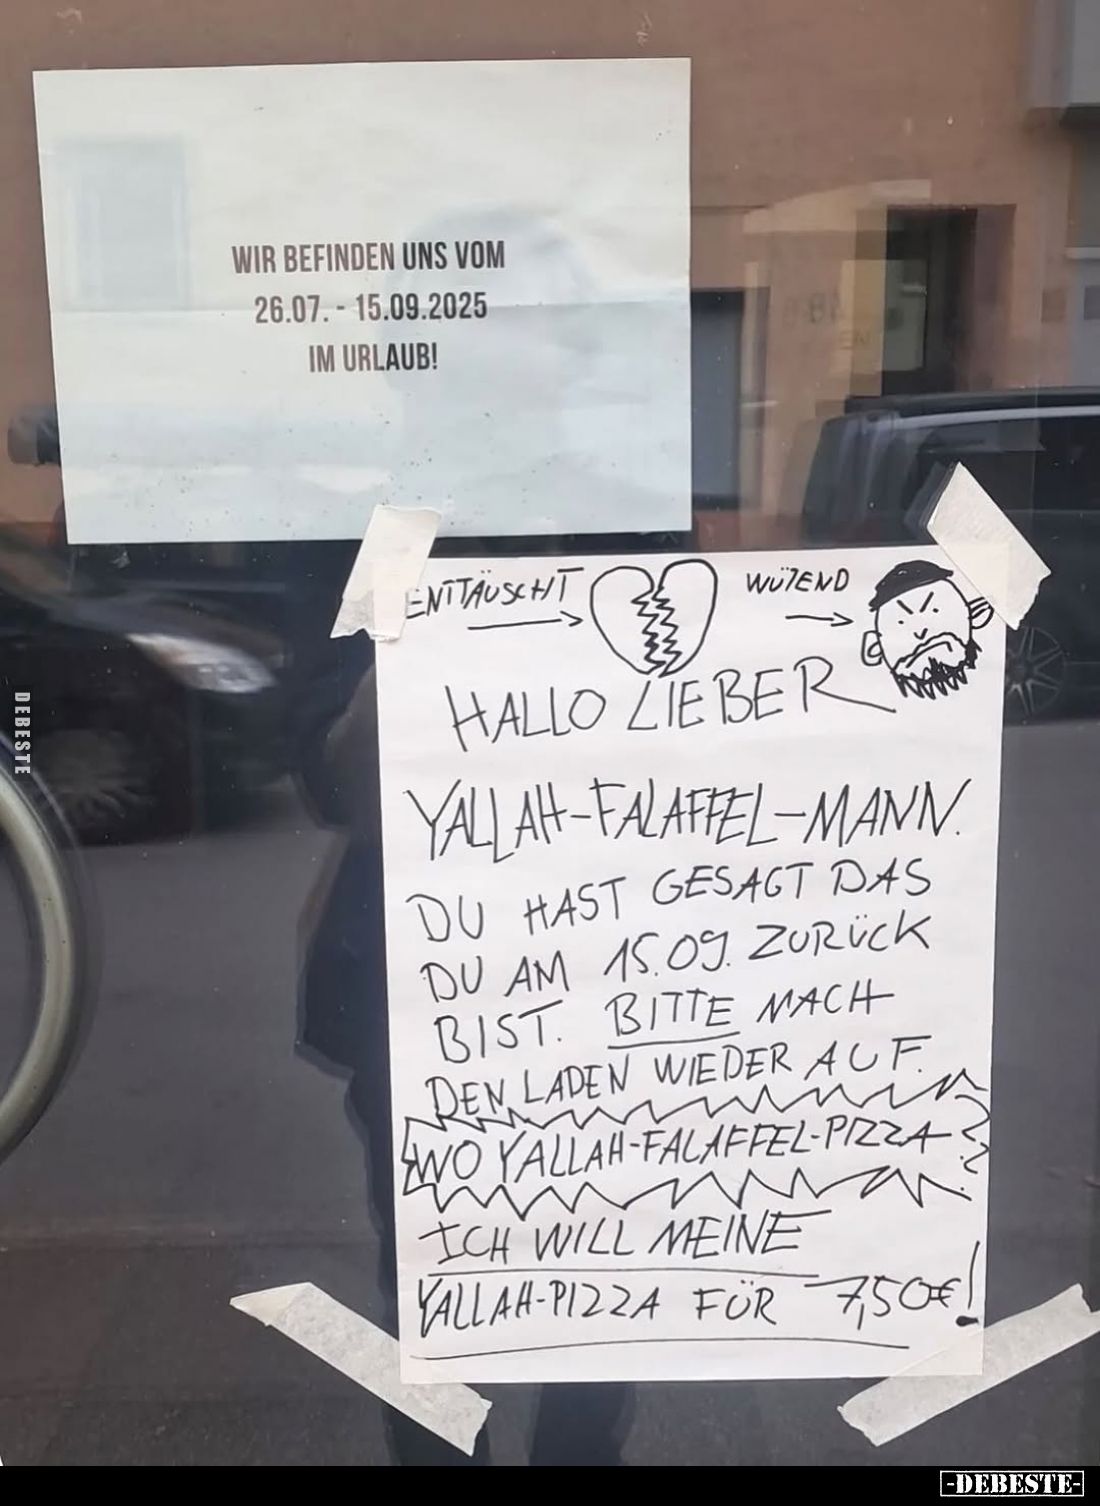 WIR BEFINDEN UNS VOM
26.07. - 15.09.2025
IM URLAUB!
ENTTÄUSCHT
WÜTEND
HALLO LIEBER
YALLAH-FALAFFEL-MANN.
DU HAST GESAGT DAS
DU AM 15.09. ZURÜCK
BIST. BITTE MACH
DEN LADEN WIEDER AUF.
WO YALLAH-FALAFFEL-PIZZA??
ICH WILL MEINE
YALLAH-PIZZA FÜR 7,50€!
DEBESTE
-DEBESTE-